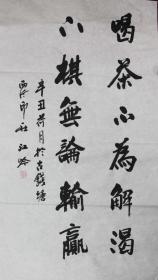 喝茶不為解渴
下棋無論輸贏
辛丑荷月於古錢塘
西泠印社江吟